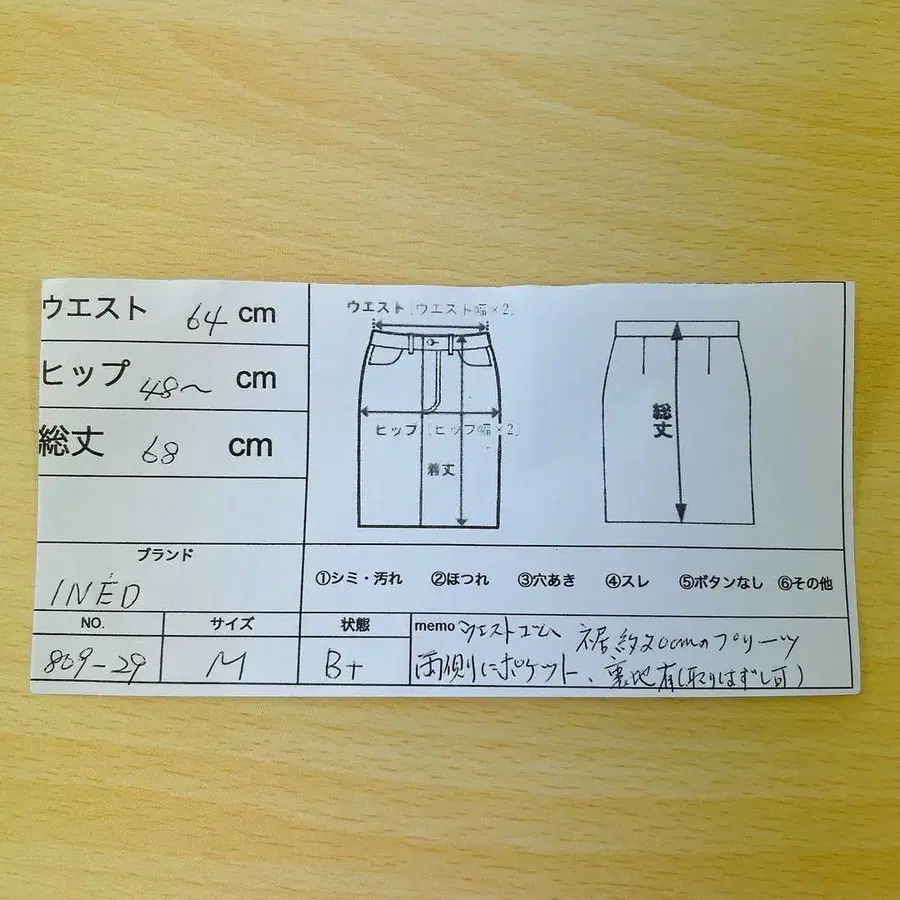 ウエスト 64 cm
ヒップ 48〜 cm
総丈 68 cm
ウエスト［ウエスト幅×2］
ヒップ［ヒップ幅×2］
着丈
総丈
ブランド
INÉD
①シミ・汚れ ②ほつれ ③穴あき ④スレ ⑤ボタンなし ⑥その他
NO. サイズ 状態
809-29 M B+
memo ウエストゴム、裾約20cmのプリーツ
両側にポケット、裏地有(取りはずし可)